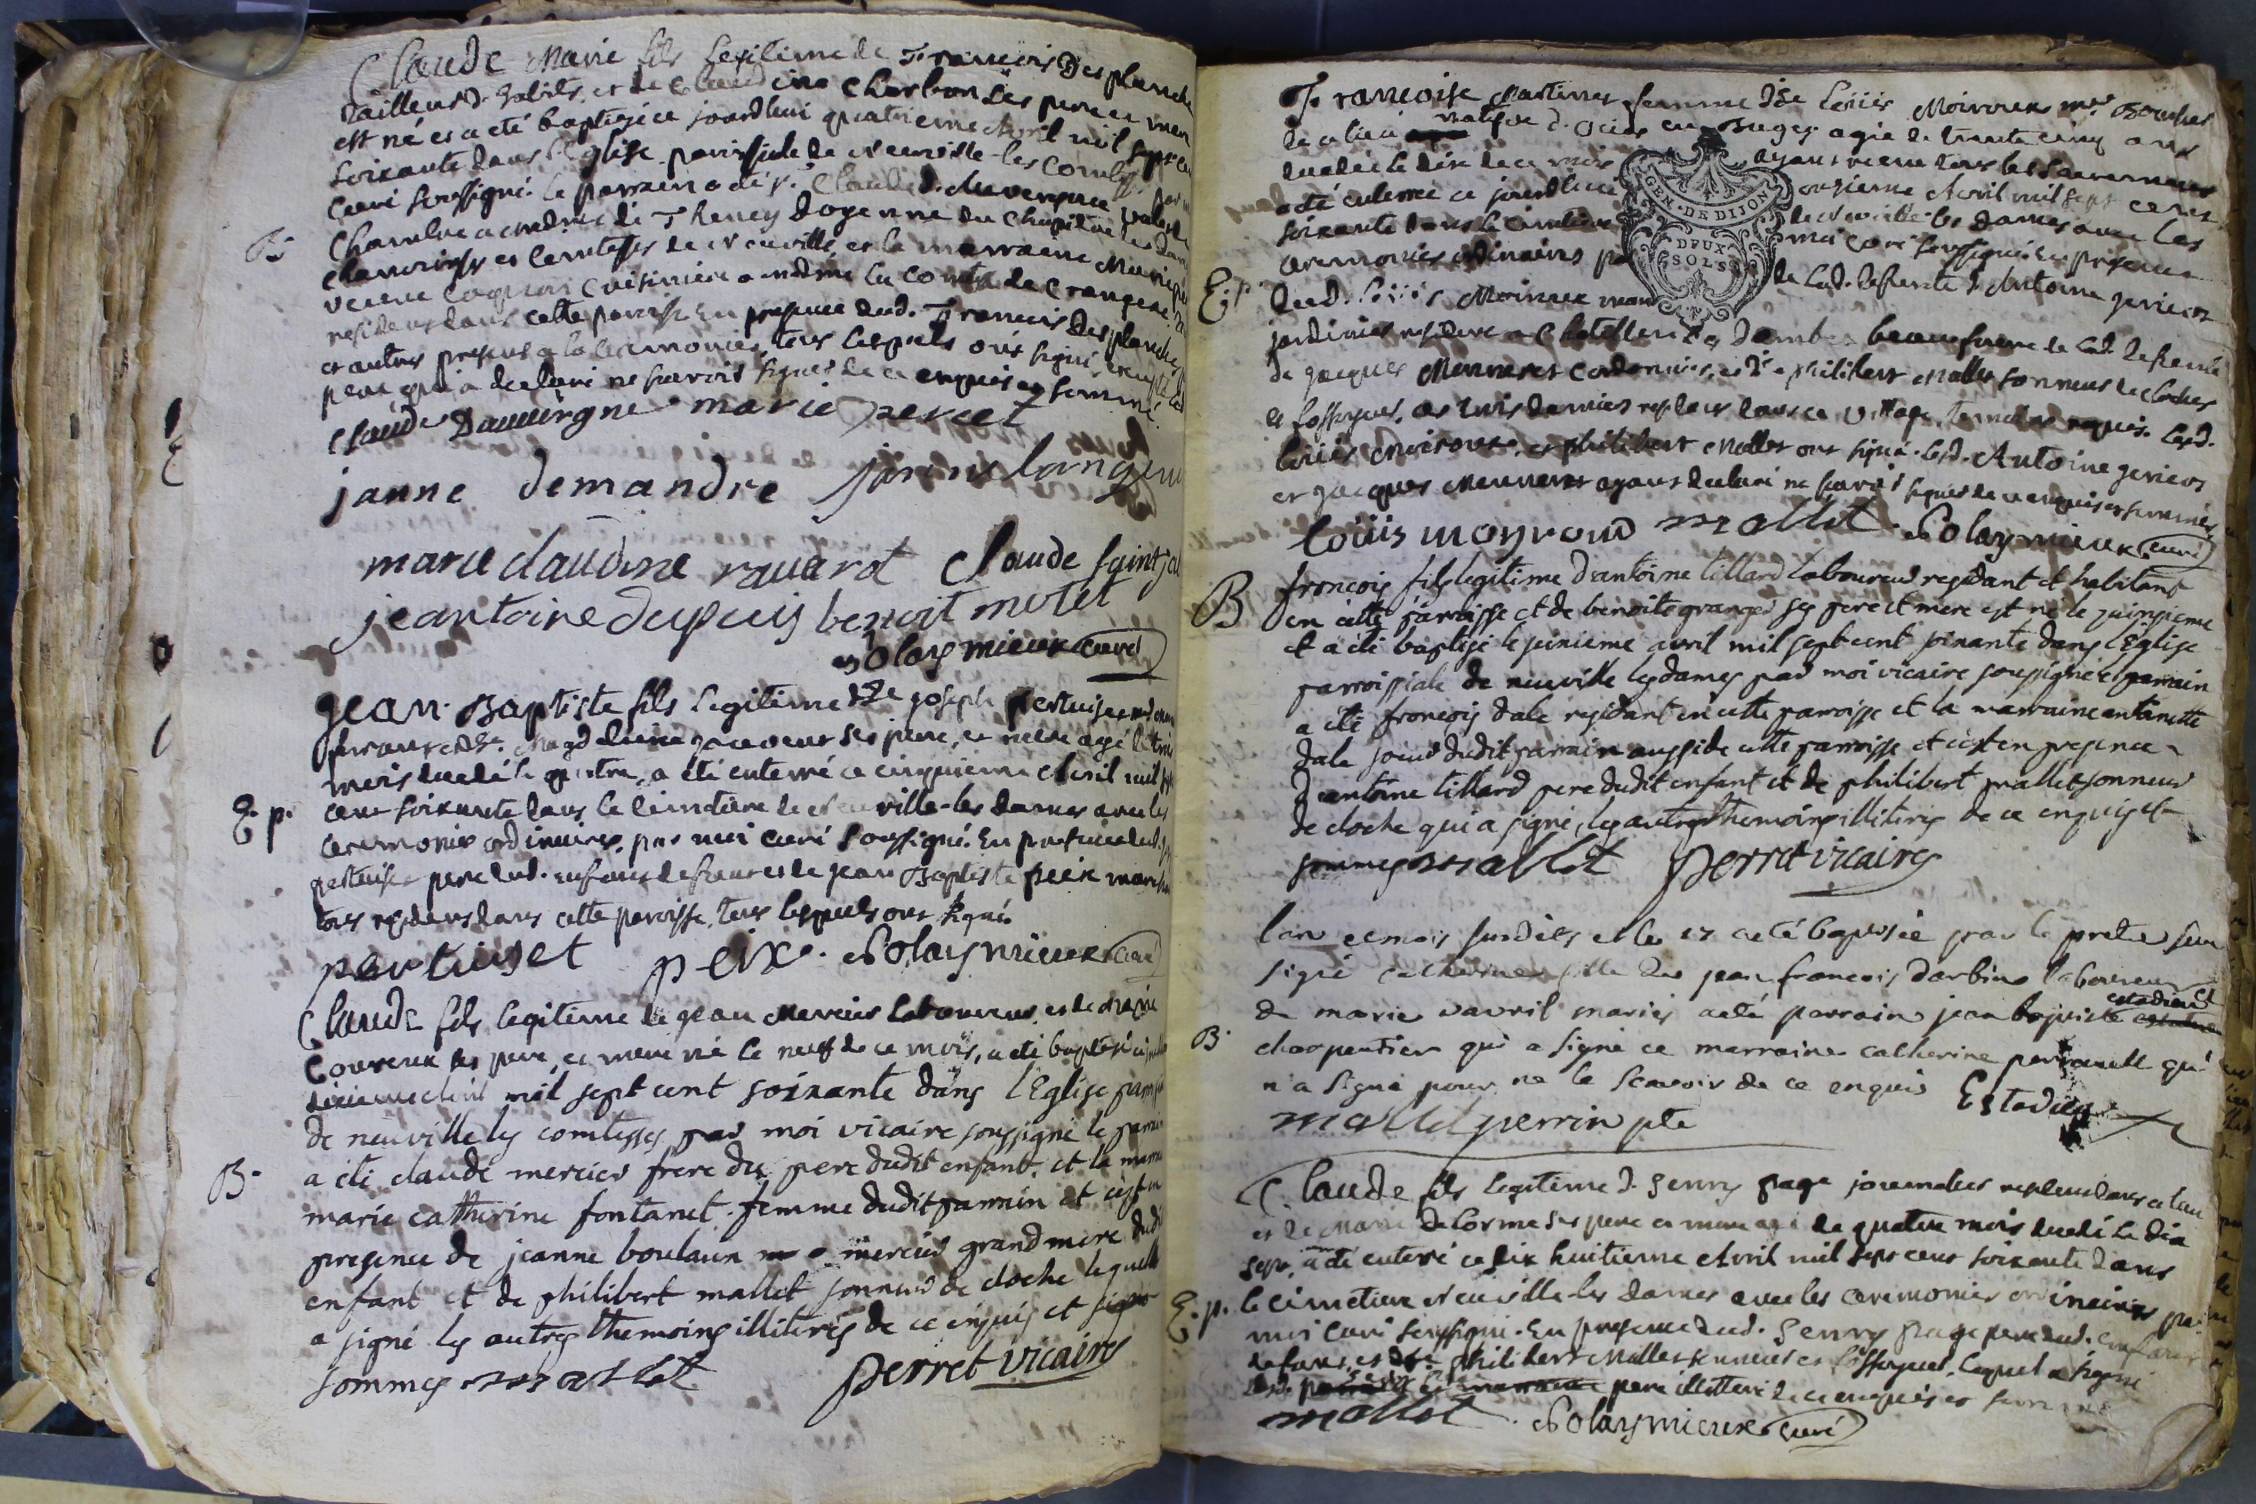 Claude Marie fils legitime de Francois Desplanche
tailleur d'habits, et de Claudine Charbon ses pere et mere
est né et a eté baptisé ce jourdhui quatrieme Avril mil sept cen
soixante dans l'Eglise paroissiale de Neuville-les Comtesses par
curé soussigné. le parrain a été Sr. Claude d'Auvergne valet de
B. chambre a madme de Thenay doyenne du chapitre des dam
chanoinesses et comtesses de Neuville, et la marraine Marie
veuve cuisiniere a madme la comte de
residents dans cette paroisse En presence dud. Francois Desplanche
et autres presens a la ceremonie, tous lesquels ont signé, excepté led.
pere qui a declaré ne sçavoir signer de ce enquis et sommé
Claude Dauuergne marie percet
janne demandre
marie claudine rauarot Claude saint
jeantoine dupuis benoit motet
Nolaymieux curé
Jean-Baptiste fils legitime de Sr joseph pertuiset
et de Magdeleine ses pere, et mere agé de trois
mois decedé le quatre, a été enterré ce cinquieme Avril mil sept
E. p. cent soixante dans le cimetiere de Neuville-les dames avec les
ceremonies ordinaires, par moi curé soussigné. En presence dud. Sr
pertuiset pere dud. enfant defunt et de jean Baptiste peix march
tous residens dans cette paroisse, tous lesquels ont signé.
pertuiset peix. Nolaymieux curé
Claude fils legitime de jean Mercier Laboureur, et de marie
Couvreux ses pere, et mere né le neuf de ce mois, a eté baptisé ce
dixieme Avril mil sept cent soixante dans l'Eglise parois
de neuville les comtesses par moi vicaire soussigné le parrain
B. a été claude mercier frere du pere dudit enfant. et la marr
marie catherine fontanet. femme dudit parrain et c'est en
presence de jeanne boulaun mercier grand mere dudit
enfant et de philibert mallet sonneur de cloche lequel
a signé les autres themoins illiterés de ce enquis et
sommes mallet perret vicaire
Francoise Martinet femme de Sr Loüis Moiroux mre Boucher
de ce lieu native d' en Bugey agée de trente cinq ans
decedée le dix de ce mois ayant receu tous les sacremens
a été enterrée ce jourdhui onzieme Avril mil sept cent
soixante dans le cimetiere de Neuville-les dames avec les
ceremonies ordinaires par moi curé soussigné En presence
E. p. dud. Loüis Moiroux mari de lad. defunte d'Antoine geniew
GEN. DE DIJON
DEUX SOLS
jardinier resident a Chatellen en Dombes beaufrere de lad. defunte
de jacques Meunier Cordonnier, et de philibert Mallet sonneur de cloches
et fossoyeur, ces trois derniers residens dans ce village, temoins requis. Lesd.
Loüis Moiroux, et philibert Mallet ont signé. lesd. Antoine geniew
et jacques Meunier ayant declaré ne sçavoir signer de ce enquis et sommés
loüis moyroud mallet. Nolaymieux curé
B francois fils legitime d'antoine tillard laboureur residant et habitant
en cette parroisse et de benoite granger ses pere et mere est né le quinzieme
et a été baptisé le seizieme avril mil sept cent soixante dans l'Eglise
parroissiale de neuville les dames par moi vicaire soussigné et parrain
a été francois dale residant en cette parroisse et la marraine antoinette
dale soeur dudit parrain aussi de cette parroisse et c'est en presence
d'antoine tillard pere dudit enfant et de philibert mallet sonneur
de cloche qui a signé, les autres themoins illiterés de ce enquis et
sommes mallet perret vicaire
l'an et mois susdits et le 17 a eté baptisée par le pretre sous
signé catherine fille de jean francois darbins laboureur et
de marie vavril mariés a eté parrain jean baptiste estadieu
B. charpentier qui a signé et marraine catherine perraudt qui
n'a signé pour ne le scavoir de ce enquis Estadieu
mallet perrin ptre
Claude fils legitime d'henry page journalier resident dans ce lieu
et de Marie Delorme ses pere et mere agé de quatre mois decedé le dix
sept, a été enterré ce dix huitieme Avril mil sept cent soixante dans
E. p. le cimetiere Neuville-les dames avec les ceremonies ordinaires par
moi curé soussigné. En presence dud. henry page pere dud. enfant
defunt, et de philibert Mallet sonneur et fossoyeur, lequel a signé
led. pere illitteré de ce enquis et sommé
mallet. Nolaymieux curé